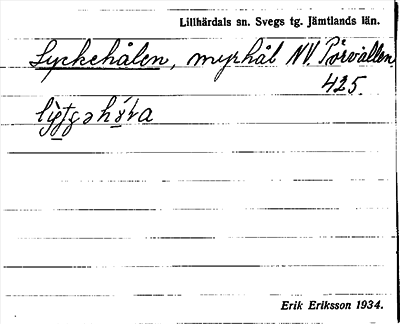 Lillhärdals sn. Svegs tg. Jämtlands län.
Lyckehålen, myrhål NV. Pörvallen
425.
Erik Eriksson 1934.